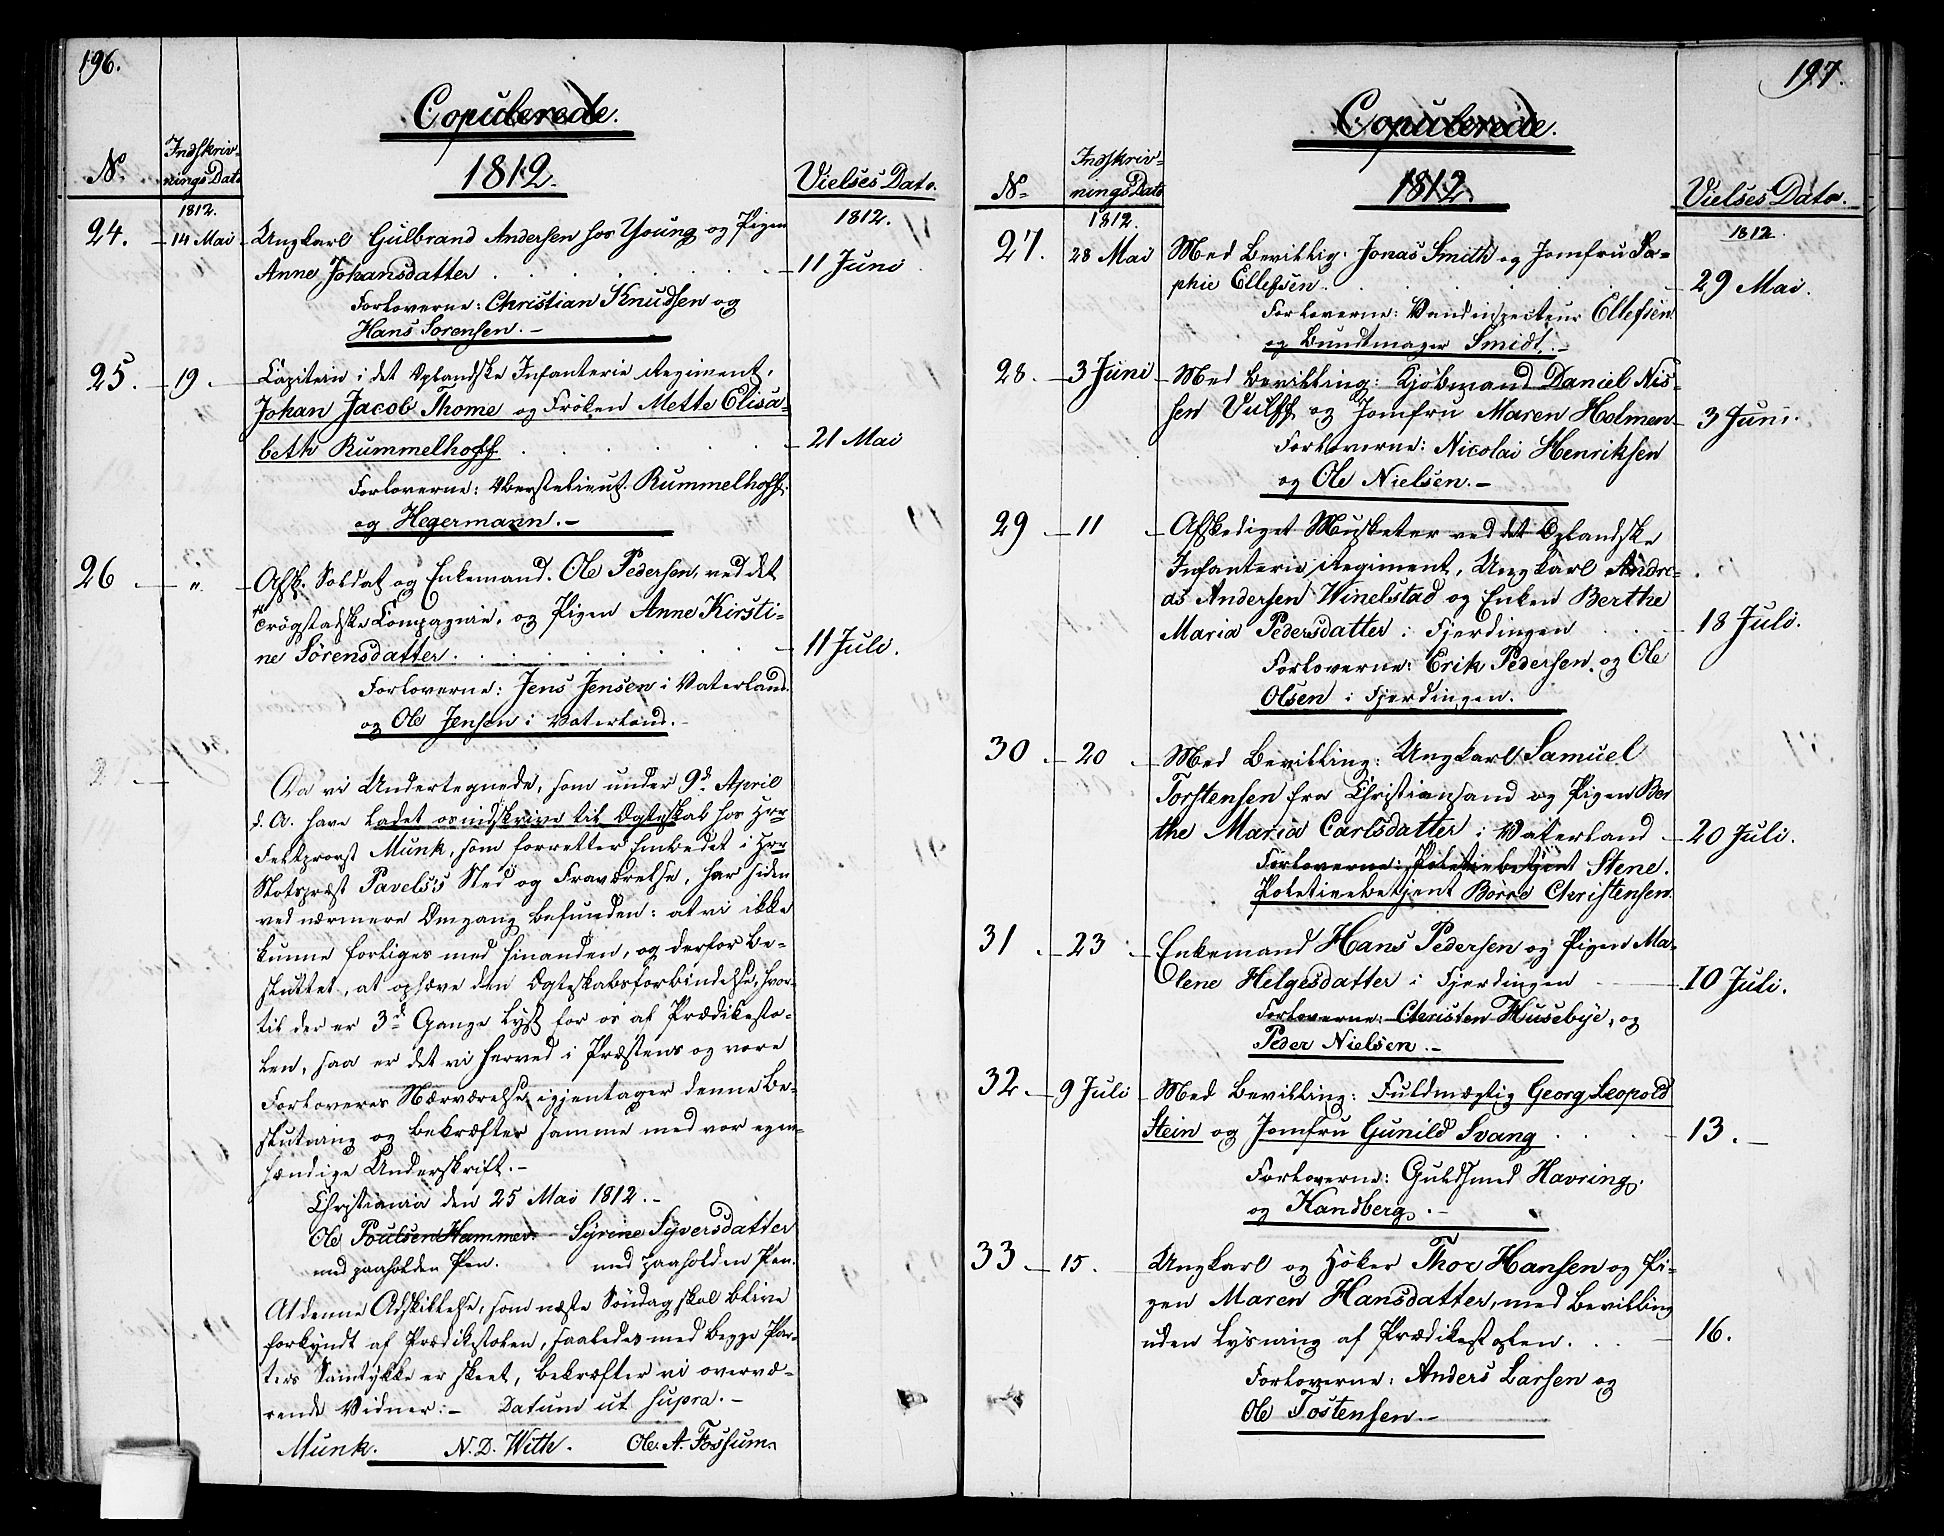 196.
Copulerede.
1812.
No.
Indskriv-
nings Dato
Vielses Dato.
1812.
1812.
24. 14 Mai Ungkarl Gulbrand Andersen hos Young og Pigen
Anne Johansdatter 11 Juni
Forloverne: Christian Knudsen og
Hans Sorensen.-
25. 19. Capitein i det Oplandske Infanterie Regiment,
Johan Jacob Thome og Frøken Mette Elisa-
beth Rummelhoff 21 Mai
Forloverne: Oberstelieut. Rummelhoff.
og Hegermann.-
26 " Afsk. Soldat og Enkemand. Ole Pedersen, ved det
Trøgstadske Compagnie, og Pigen Anne Kirsti-
ne Sørensdatter. 11 Juli.
Forloverne: Jens Jensen i Vaterland.
og Ole Jensen i Vaterland.-
Da vi Undertegnede, som under 9d April
d. A. have ladet os indskrive til Ægteskab hos Hrr
Feltprovst Munk, som forretter Embedet i Hrr
Slotspræst Pavels's Sted og Fraværelse, har siden
ved nærmere Omgang befunden: at vi ikke
kunne forliges med hinanden, og derfor be-
sluttet, at ophæve den Ægteskabsforbindelse, hvor-
til der er 3d Gange lyst for os af Prædikesto-
len, saa er det vi herved i Præstens og vore
Forloveres Nærværelse igjentager denne Be-
slutning og bekræfter samme med vor egen-
hændige Underskrift.-
Christiania den 25 Mai 1812.-
Ole Poulsen Hammer. Syrine Syversdatter
med paaholden Pen. med paaholden Pen.
At denne Adskillelse, som næste Søndag skal blive
forkyndt af Prædikestolen, saaledes med begge Par-
ters Samtykke er skeet, bekræfter vi overvæ-
rende Vidner:- Datum ut supra.-
Munk. N. D. With. Ole A. Fossum.
197.
Copulerede.
1812.
No
Indskriv-
nings Dato
Vielses Dato.
1812.
1812.
27. 28 Mai Med Bevillig. Jonas Smith og Jomfru So-
phie Ellefsen. 29 Mai.
Forloverne: Vandinspecteur Ellefsen
og Bundtmager Smidt.-
28. 3 Juni Med Bevilling: Kjøbmand Daniel Nis-
sen Vulff og Jomfru Maren Holmen 3 Juni.
Forloverne: Nicolai Henriksen
og Ole Nielsen.-
29 11 Afskediget Musketer ved det Oplandske
Infanterie Regiment, Ungkarl Andre-
as Andersen Winelstad og Enken Berthe
Maria Pedersdatter i Fjerdingen 18 Juli.
Forloverne: Erik Pedersen. og Ole
Olsen i Fjerdingen.
30 20 Med Bevilling: Ungkarl Samuel
Torstensen fra Christiansand og Pigen Ber
the Maria Carlsdatter i Vaterland 20 Juli.
Forloverne: Poletiebetjent Stene.
Poletiebetjent Børre Christensen.
31. 23 Enkemand Hans Pedersen og Pigen Ma-
lene Helgesdatter i Fjerdingen 10 Juli.
Forloverne: Christen Husebye, og
Peder Nielsen.-
32 9 Juli Med Bevilling: Fuldmægtig Georg Leopold
Stein og Jomfru Gunild Svang 13.
Forloverne: Guldsmed Havring.
og Kandberg.-
33 15. Ungkarl og Høker Thor Hansen og Pi-
gen Maren Hansdatter, med Bevilling
uden Lysning af Prædikestolen. 16.
Forloverne: Anders Larsen og
Ole Tostensen.-